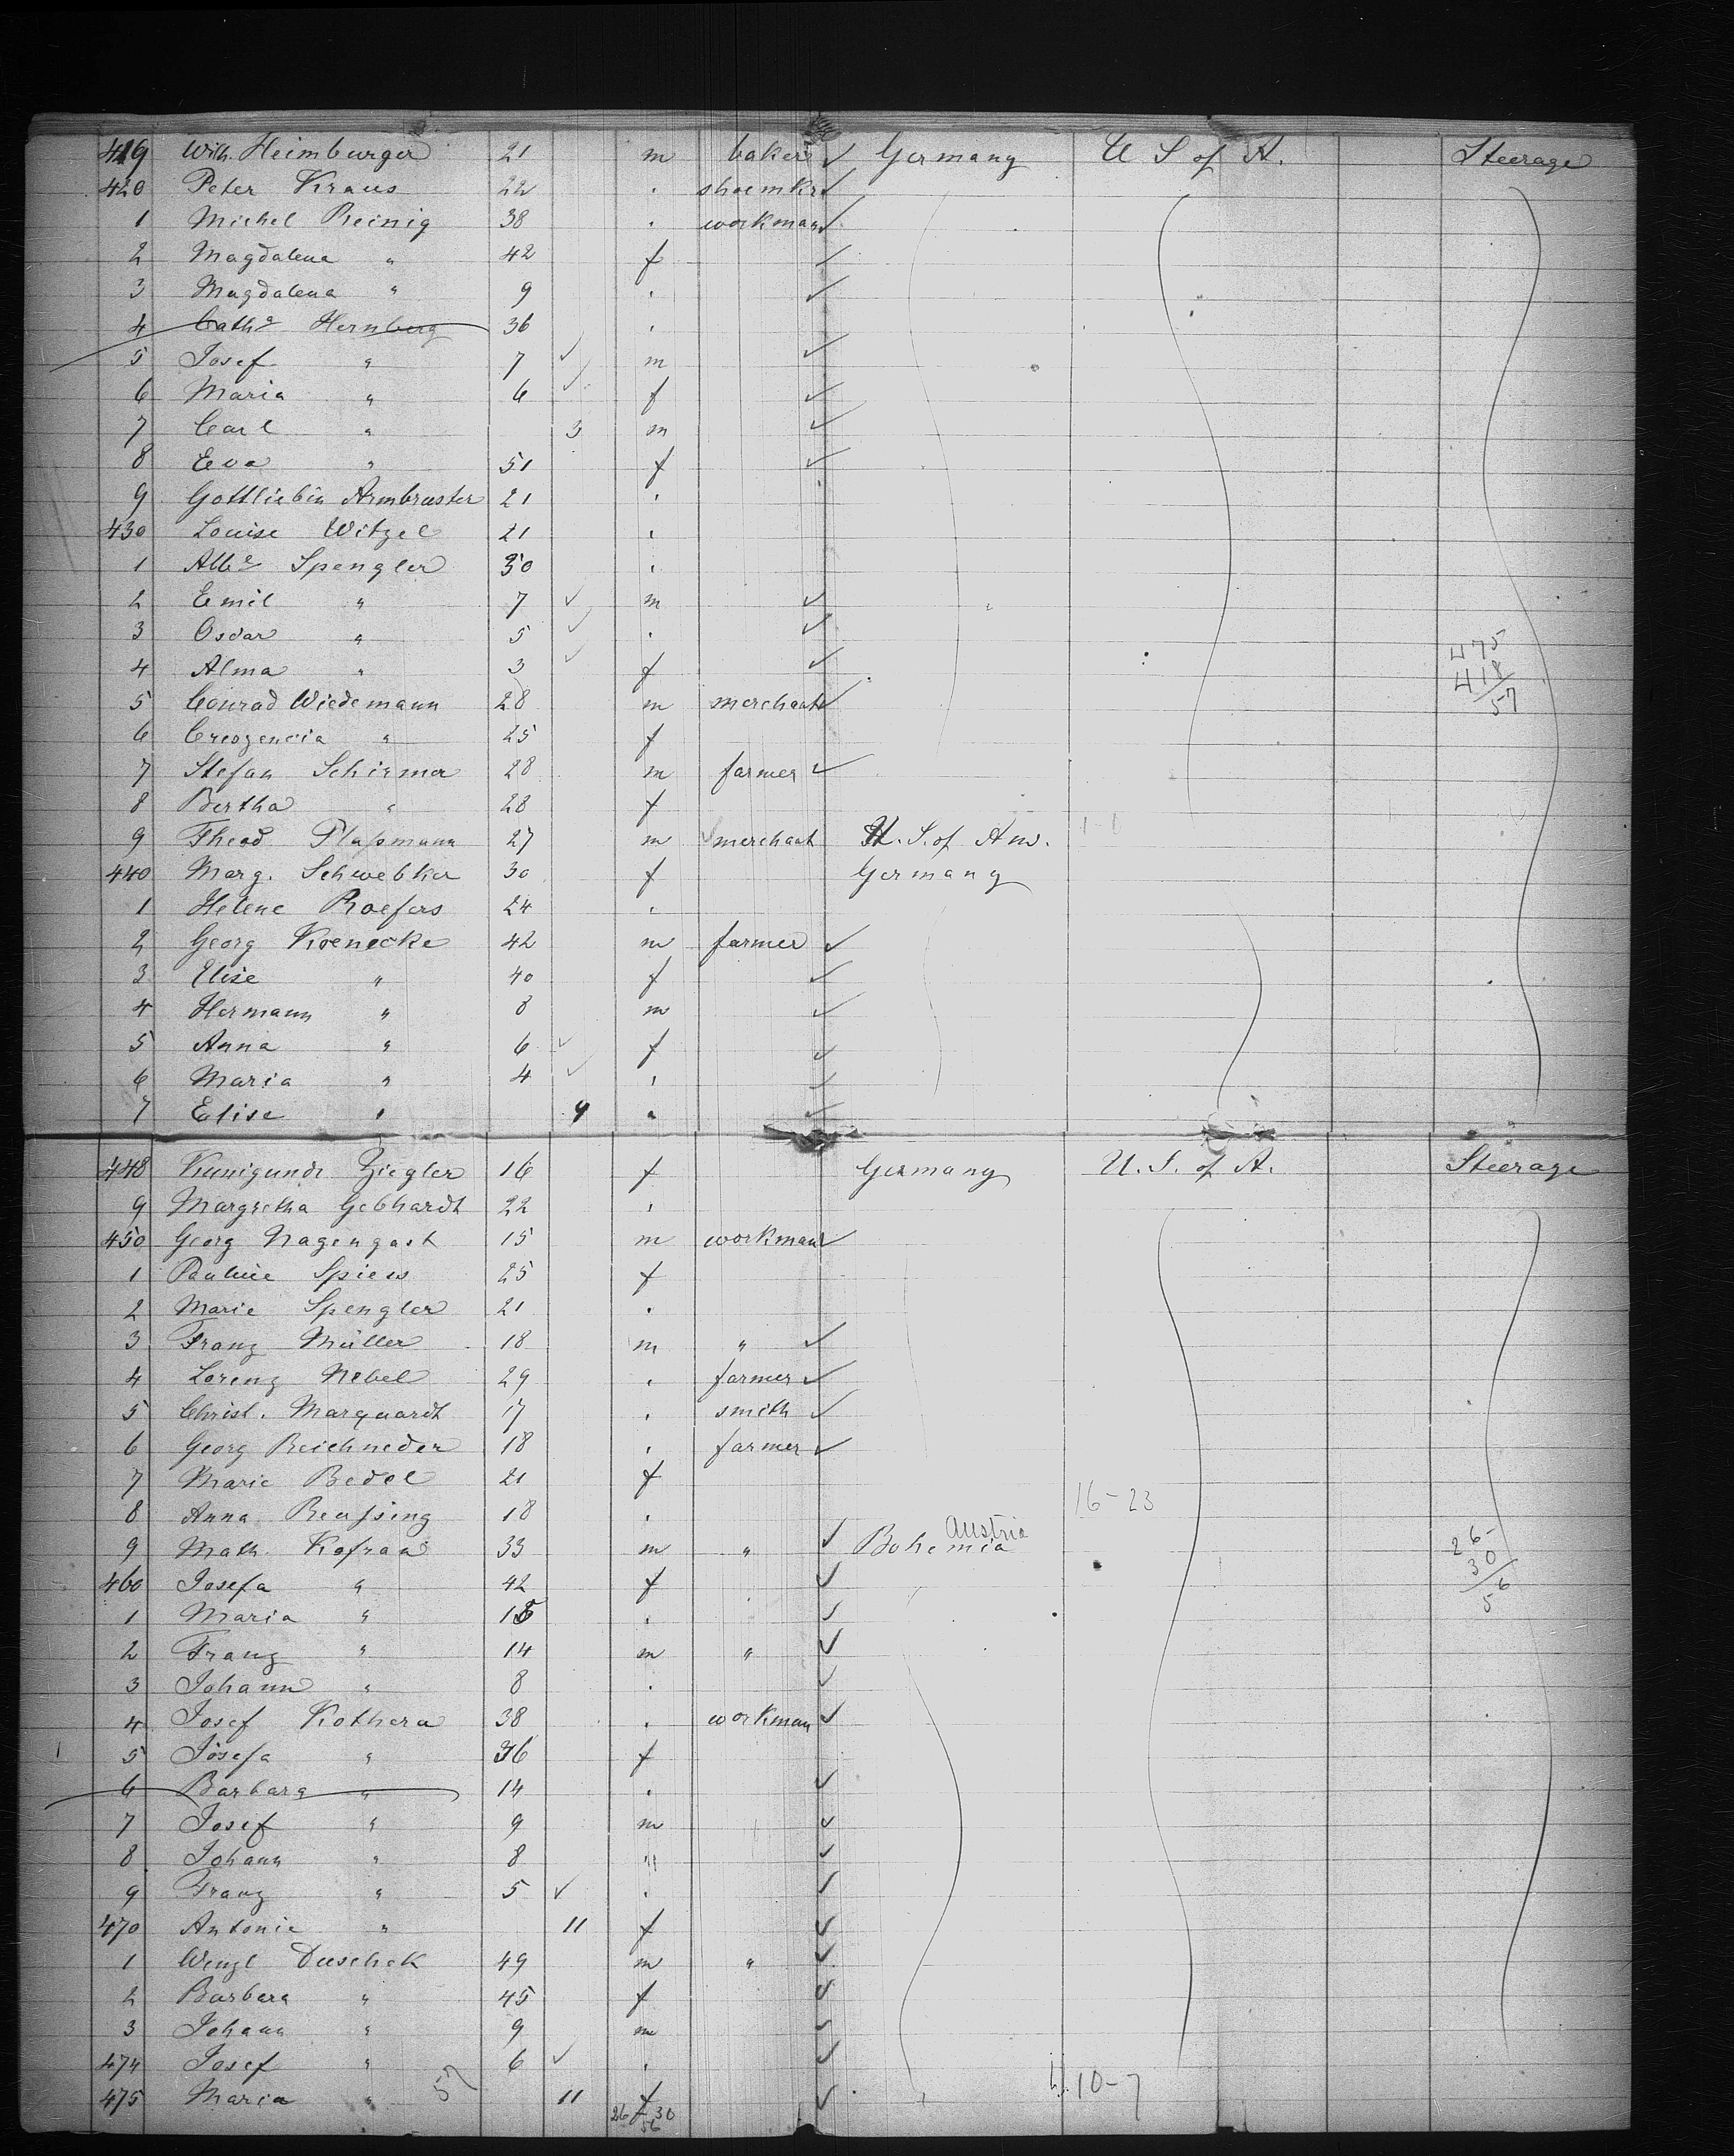 419 Wilh. Heimburger 21 m baker ✓ Germany U S of A. Steerage
420 Peter Kraus 22 . shoemkr ✓
1 Michel Reinig 38 . workman ✓
2 Magdalena " 42 f ✓
3 Magdalena " 9 . ✓
4 Cath. Hernberg 36 .
5 Josef " 7 ✓ m ✓
6 Maria " 6 ✓ f ✓
7 Carl " 3 m ✓
8 Eva " 51 f ✓
9 Gottliebin Armbruster 21 .
430 Louise Witzel 21 .
1 Spengler 30 .
2 Emil " 7 ✓ m ✓
3 Oscar " 5 ✓ . ✓
4 Alma " 3 ✓ f ✓
475
418
57
5 Conrad Wiedemann 28 m merchant ✓
6 Crescencia " 25 f
7 Stefan Schirmer 28 m farmer ✓
8 Bertha " 28 f
9 Theod Plaßmann 27 m ✓ merchant U. S. of Am.
440 Marg. Schwebker 30 f Germany
1 Helene Roefers 24 .
2 Georg Koenecke 42 m farmer ✓
3 Elise " 40 f ✓
4 Hermann " 8 m ✓
5 Anna " 6 ✓ f ✓
6 Maria " 4 ✓ . ✓
7 Elise " 9 " ✓
448 Kunigunde Ziegler 16 f Germany U. S. of A. Steerage
9 Margretha Gebhardt 22 .
450 Georg Nagengast 15 m workman ✓
1 Pauline Spiess 25 f
2 Marie Spengler 21 .
3 Franz Müller 18 m " ✓
4 Lorenz Nebel 29 . farmer ✓
5 Christ. Marquardt 17 . smith ✓
6 Georg Reichneder 18 . farmer ✓
7 Marie Bedel 21 f
8 Anna Reußing 18 . 16-23
Austria
9 Math. Kofran 33 m " ✓ Bohemia
26-
30
56
460 Josefa " 42 f ✓
1 Maria " 18 . ✓
2 Franz " 14 m " ✓
3 Johann " 8 . ✓
4 Josef Kothera 38 . workman ✓
5 Josefa " 36 f
6 Barbara " 14 . ✓
7 Josef " 9 m ✓
8 Johann " 8 " ✓
9 Franz " 5 ✓ . ✓
470 Antonie " 11 f ✓
1 Wenzl Duschek 49 m " ✓
2 Barbara " 45 f ✓
3 Johann " 9 m ✓
474 Josef " 6 ✓ . ✓
475 Maria " 57 11 f ✓ 10-7
26 30
56